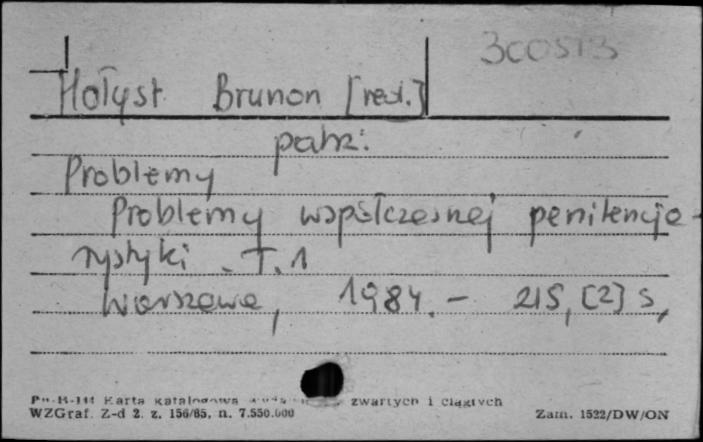 300513
Hołyst Brunon [red.]
patrz:
Problemy
Problemy współczesnej penitencja-
rystyki. T. 1
Warszawa, 1984. - 215, [2] s,
Pu-B-141 Karta katalogowa zwartych i ciągłych
WZGraf. Z-d 2. z. 156/85, n. 7.550.000 Zam. 1522/DW/ON